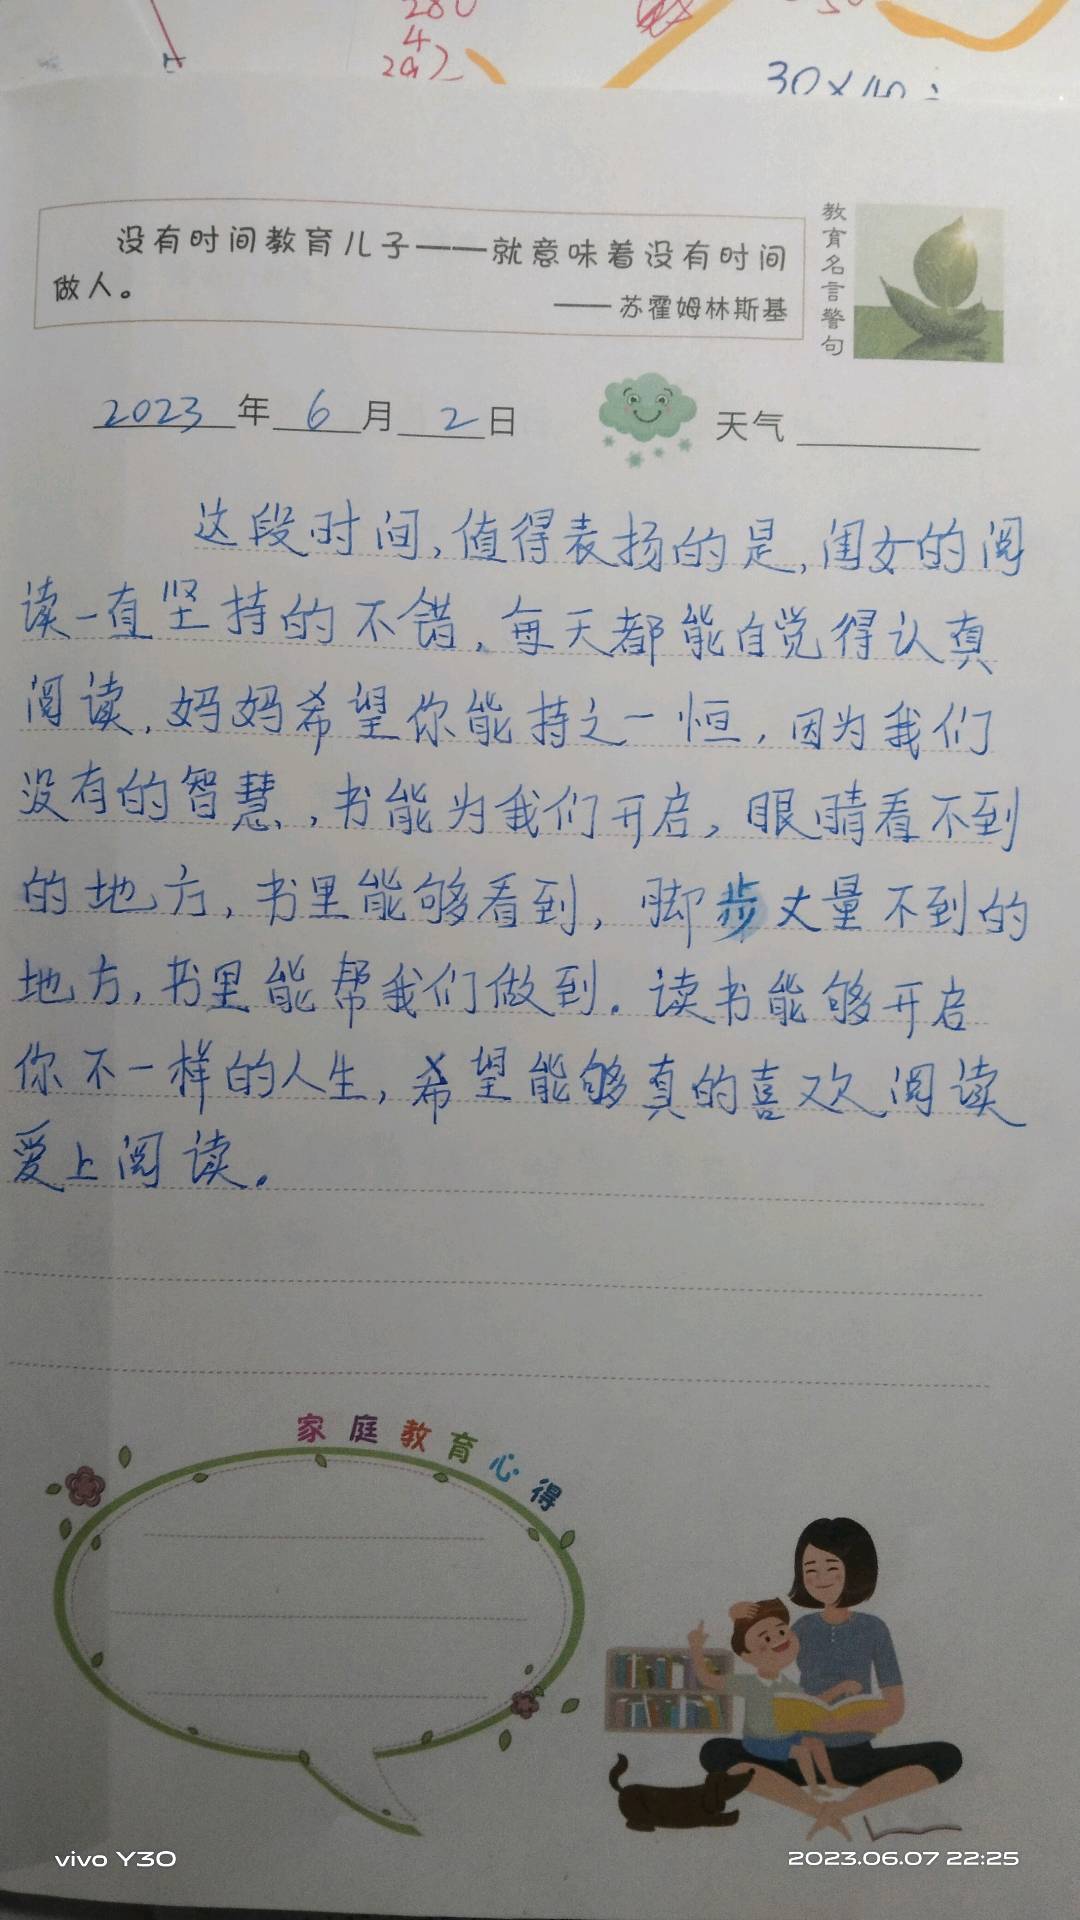 280
4
30×40÷
没有时间教育儿子——就意味着没有时间
做人。
——苏霍姆林斯基
教育名言警句
2023年6月2日
天气
这段时间,值得表扬的是,闺女的阅
读一直坚持的不错,每天都能自觉得认真
阅读,妈妈希望你能持之一恒,因为我们
没有的智慧,书能为我们开启,眼睛看不到
的地方,书里能够看到,脚步丈量不到的
地方,书里能帮我们做到.读书能够开启
你不一样的人生,希望能够真的喜欢阅读
爱上阅读.
家庭教育心得
vivo Y30
2023.06.07 22:25